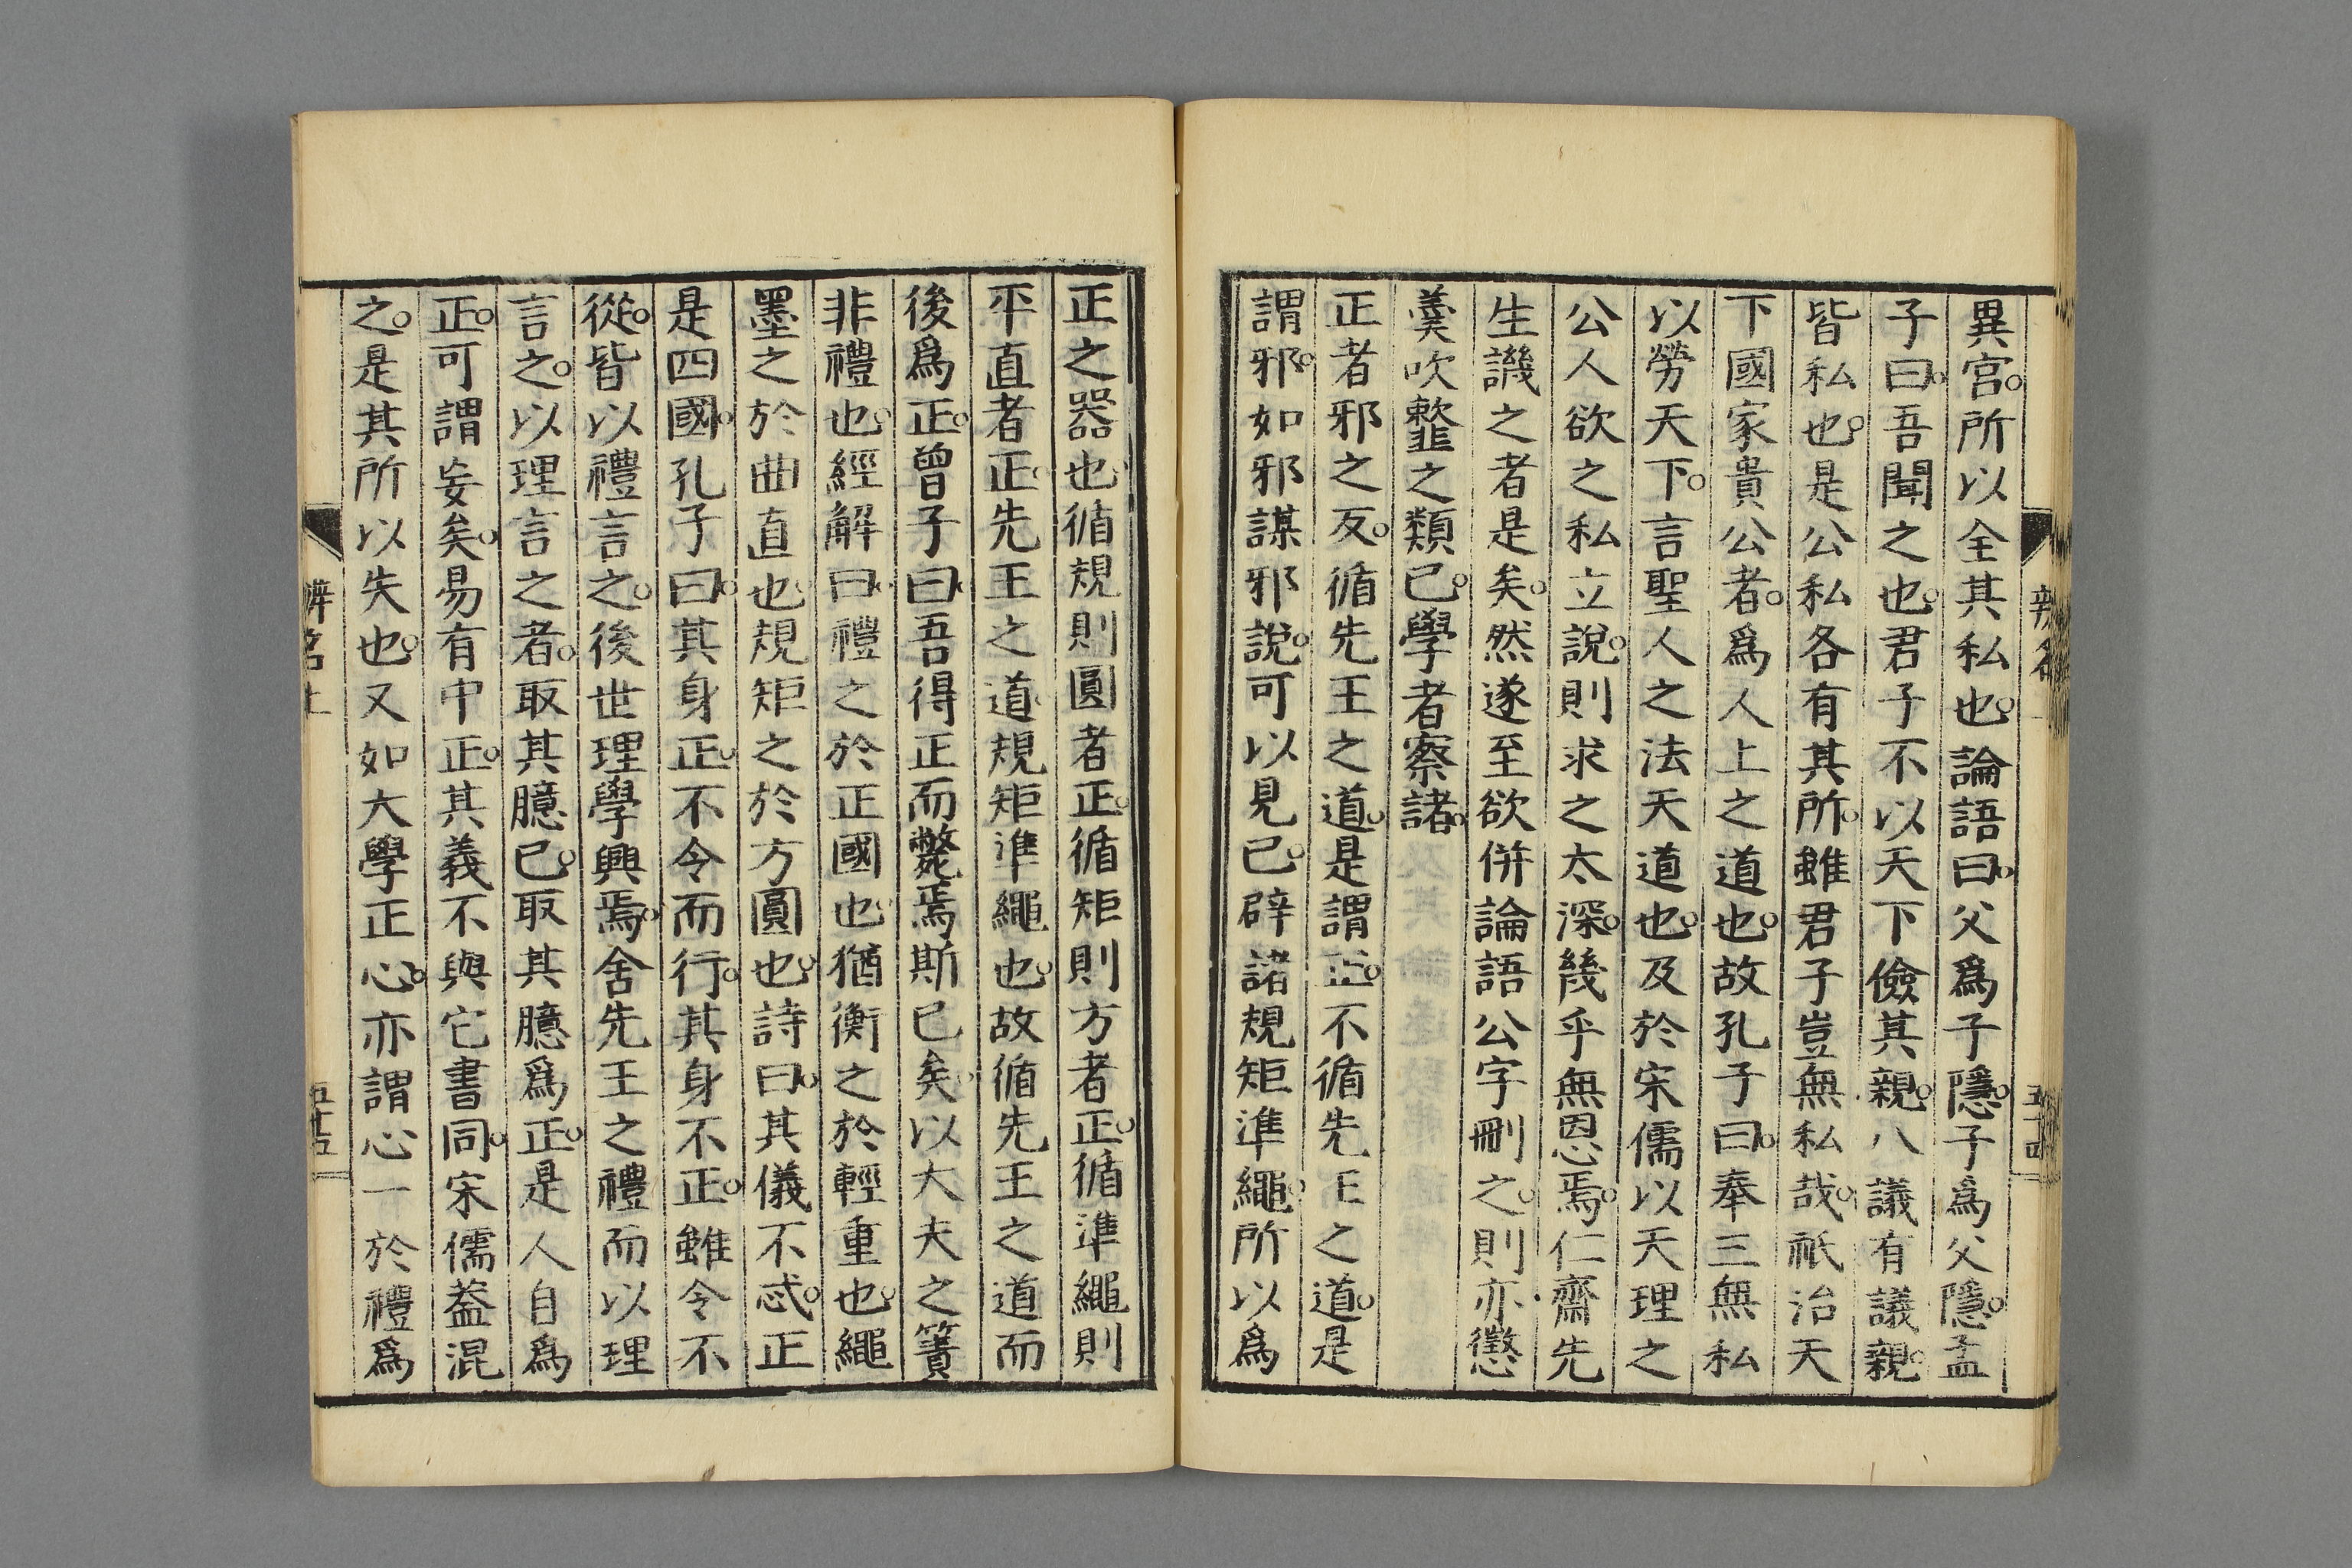 異宮。所以全其私也。論語曰。父爲子隱。子爲父隱。孟
子曰。吾聞之也。君子不以天下儉其親。八議有議親。
皆私也。是公私各有其所。雖君子豈無私哉。祇治天
下國家貴公者。爲人上之道也。故孔子曰。奉三無私
以勞天下。言聖人之法天道也。及於宋儒以天理之
公人欲之私立說。則求之太深。幾乎無恩焉。仁齋先
生譏之者是矣。然遂至欲併論語公字刪之。則亦懲
羹吹韲之類已。學者察諸。
正者邪之反。循先王之道。是謂正。不循先王之道。是
謂邪。如邪謀邪說。可以見已。辟諸規矩準繩。所以爲
正之器也。循規則圓者正。循矩則方者正。循準繩則
平直者正。先王之道。規矩準繩也。故循先王之道而
後爲正。曾子曰。吾得正而斃焉斯已矣。以大夫之簀
非禮也。經解曰。禮之於正國也。猶衡之於輕重也。繩
墨之於曲直也。規矩之於方圓也。詩曰。其儀不忒。正
是四國。孔子曰。其身正。不令而行。其身不正。雖令不
從。皆以禮言之。後世理學興焉。舍先王之禮而以理
言之。以理言之者。取其臆已。取其臆爲正。是人自爲
正。可謂妄矣。易有中正。其義不與它書同。宋儒葢混
之。是其所以失也。又如大學正心。亦謂心一於禮爲
辨名上
五十五